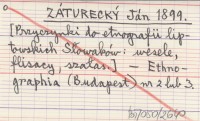 ZÁTURECKÝ Ján 1899.
[Przyczynki do etnografii lip-
towskich Słowaków: wesele,
flisacy, szałas.] — Ethno-
graphia (Budapest) nr 2 lub 3.